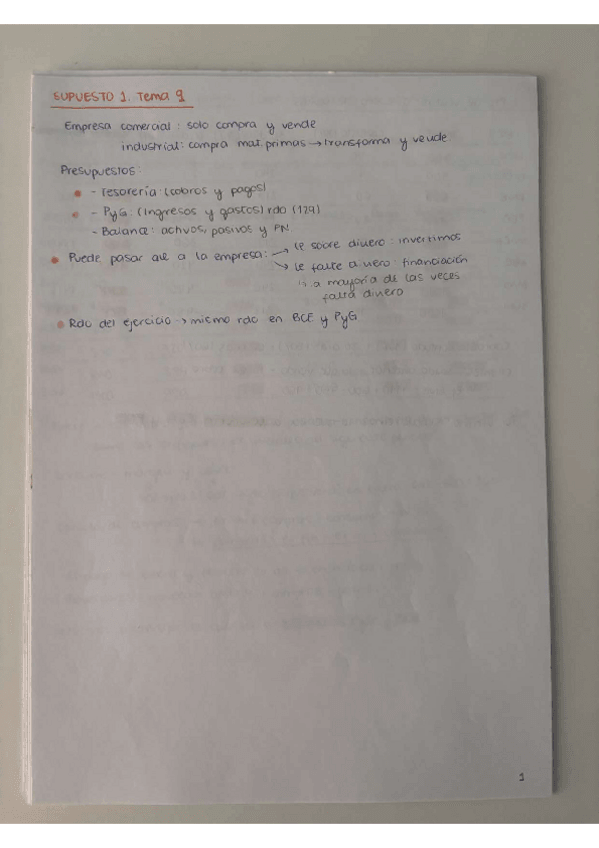 SUPUESTO 1. Tema 9
Empresa comercial: solo compra y vende
industrial: compra mat. primas → transforma y vende
Presupuestos:
- Tesorería: (cobros y pagos)
- PyG: (Ingresos y gastos) rdo (129)
- Balance: activos, pasivos y PN
Puede pasar que a la empresa: → le sobre dinero: invertimos
↘ le falte dinero: financiación
↳ a mayoría de las veces
falta dinero
Rdo del ejercicio → mismo rdo en BCE y PyG
1